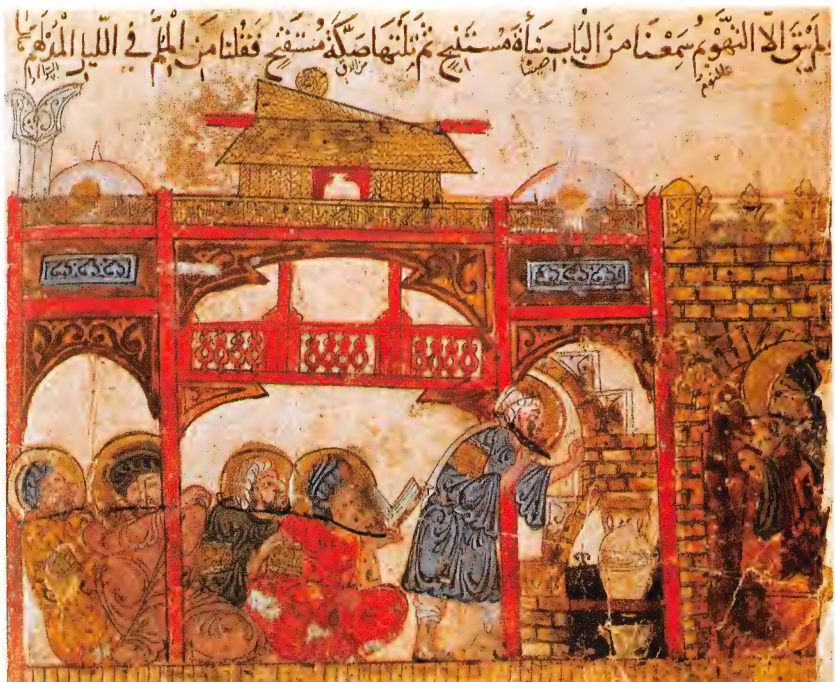 لم يبق الا التهويم سمعنا من الباب نبأة مستنبح ثم تلتها صكة مستفتح فقلنا من الملم في الليل المدلهم